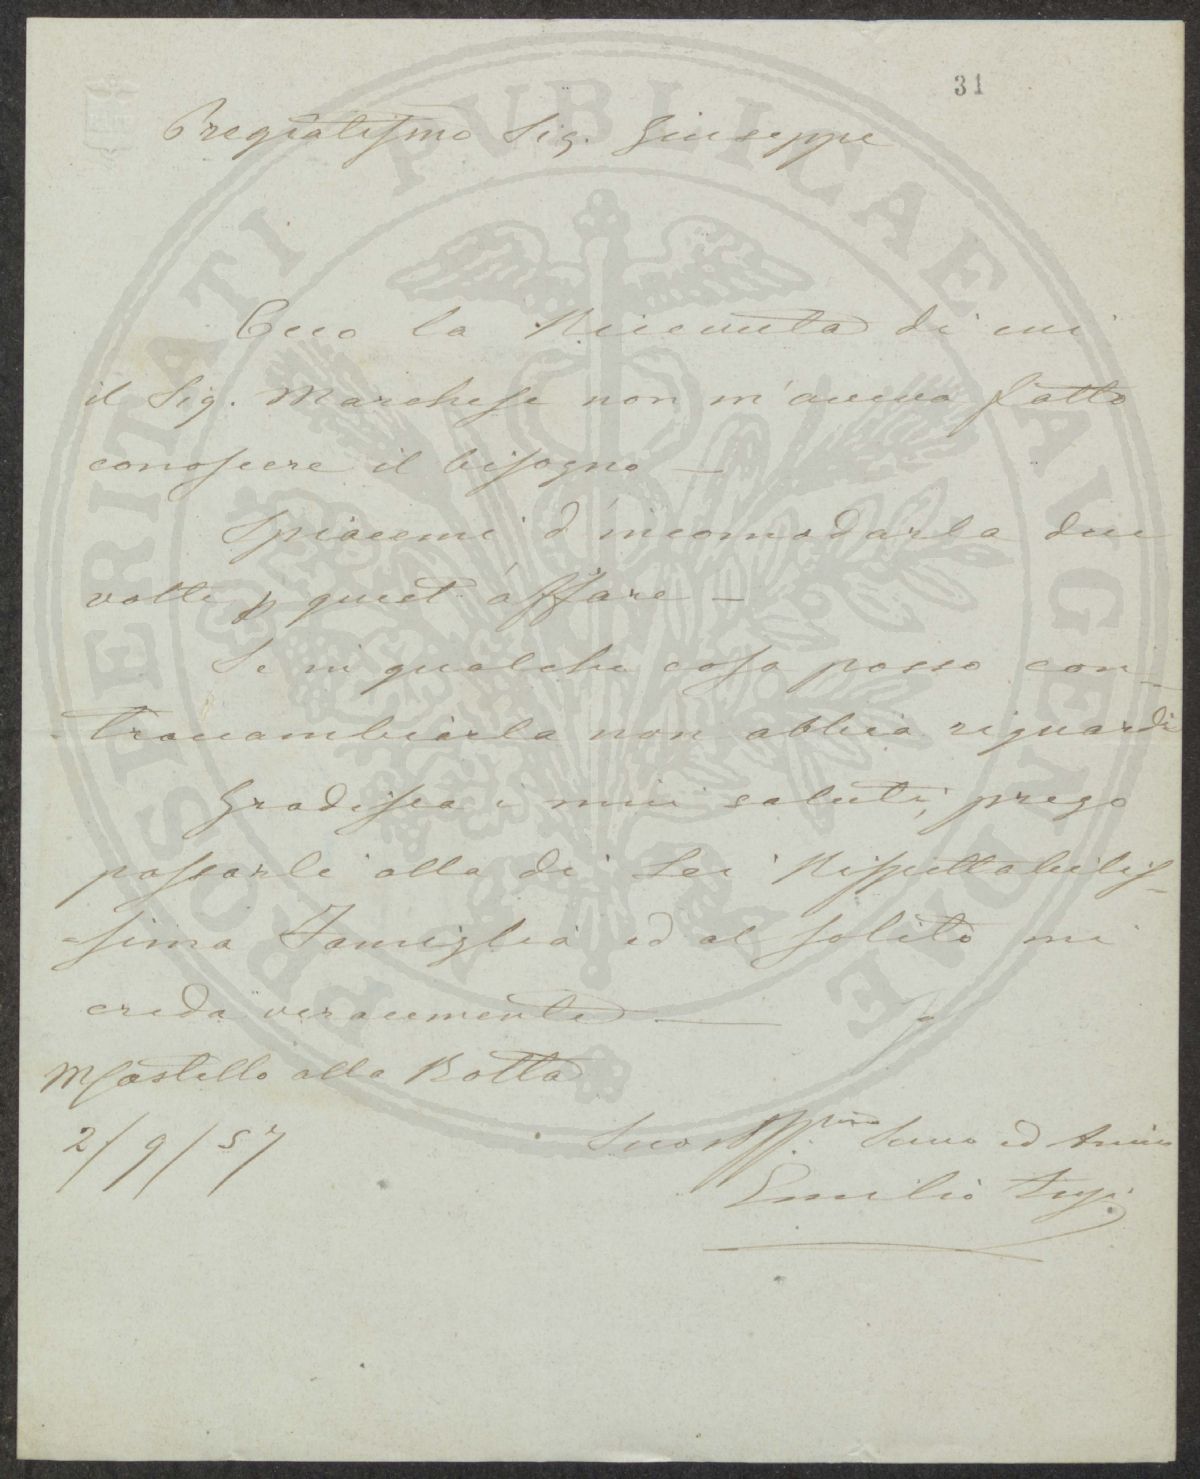 31
Pregiatissmo Sig. Giuseppe
Ecco la Ricevuta di cui
il Sig. Marchese non m'aveva fatto
conoscere il bisogno —
Spiacemi d'incomodarla due
volte p quest'affare —
Se in qualche cosa posso con_
-tracambiarla non abbia riguardi
Gradisca i miei saluti, prego
passarli alla di Lei Rispettabilis_
-sima Famiglia ed al solito mi
creda veracemente —
Castello alla Rotta
2/9/57
Suo Servo ed Amico
Emilio
PROSPERITATI PUBLICAE AUGENDAE